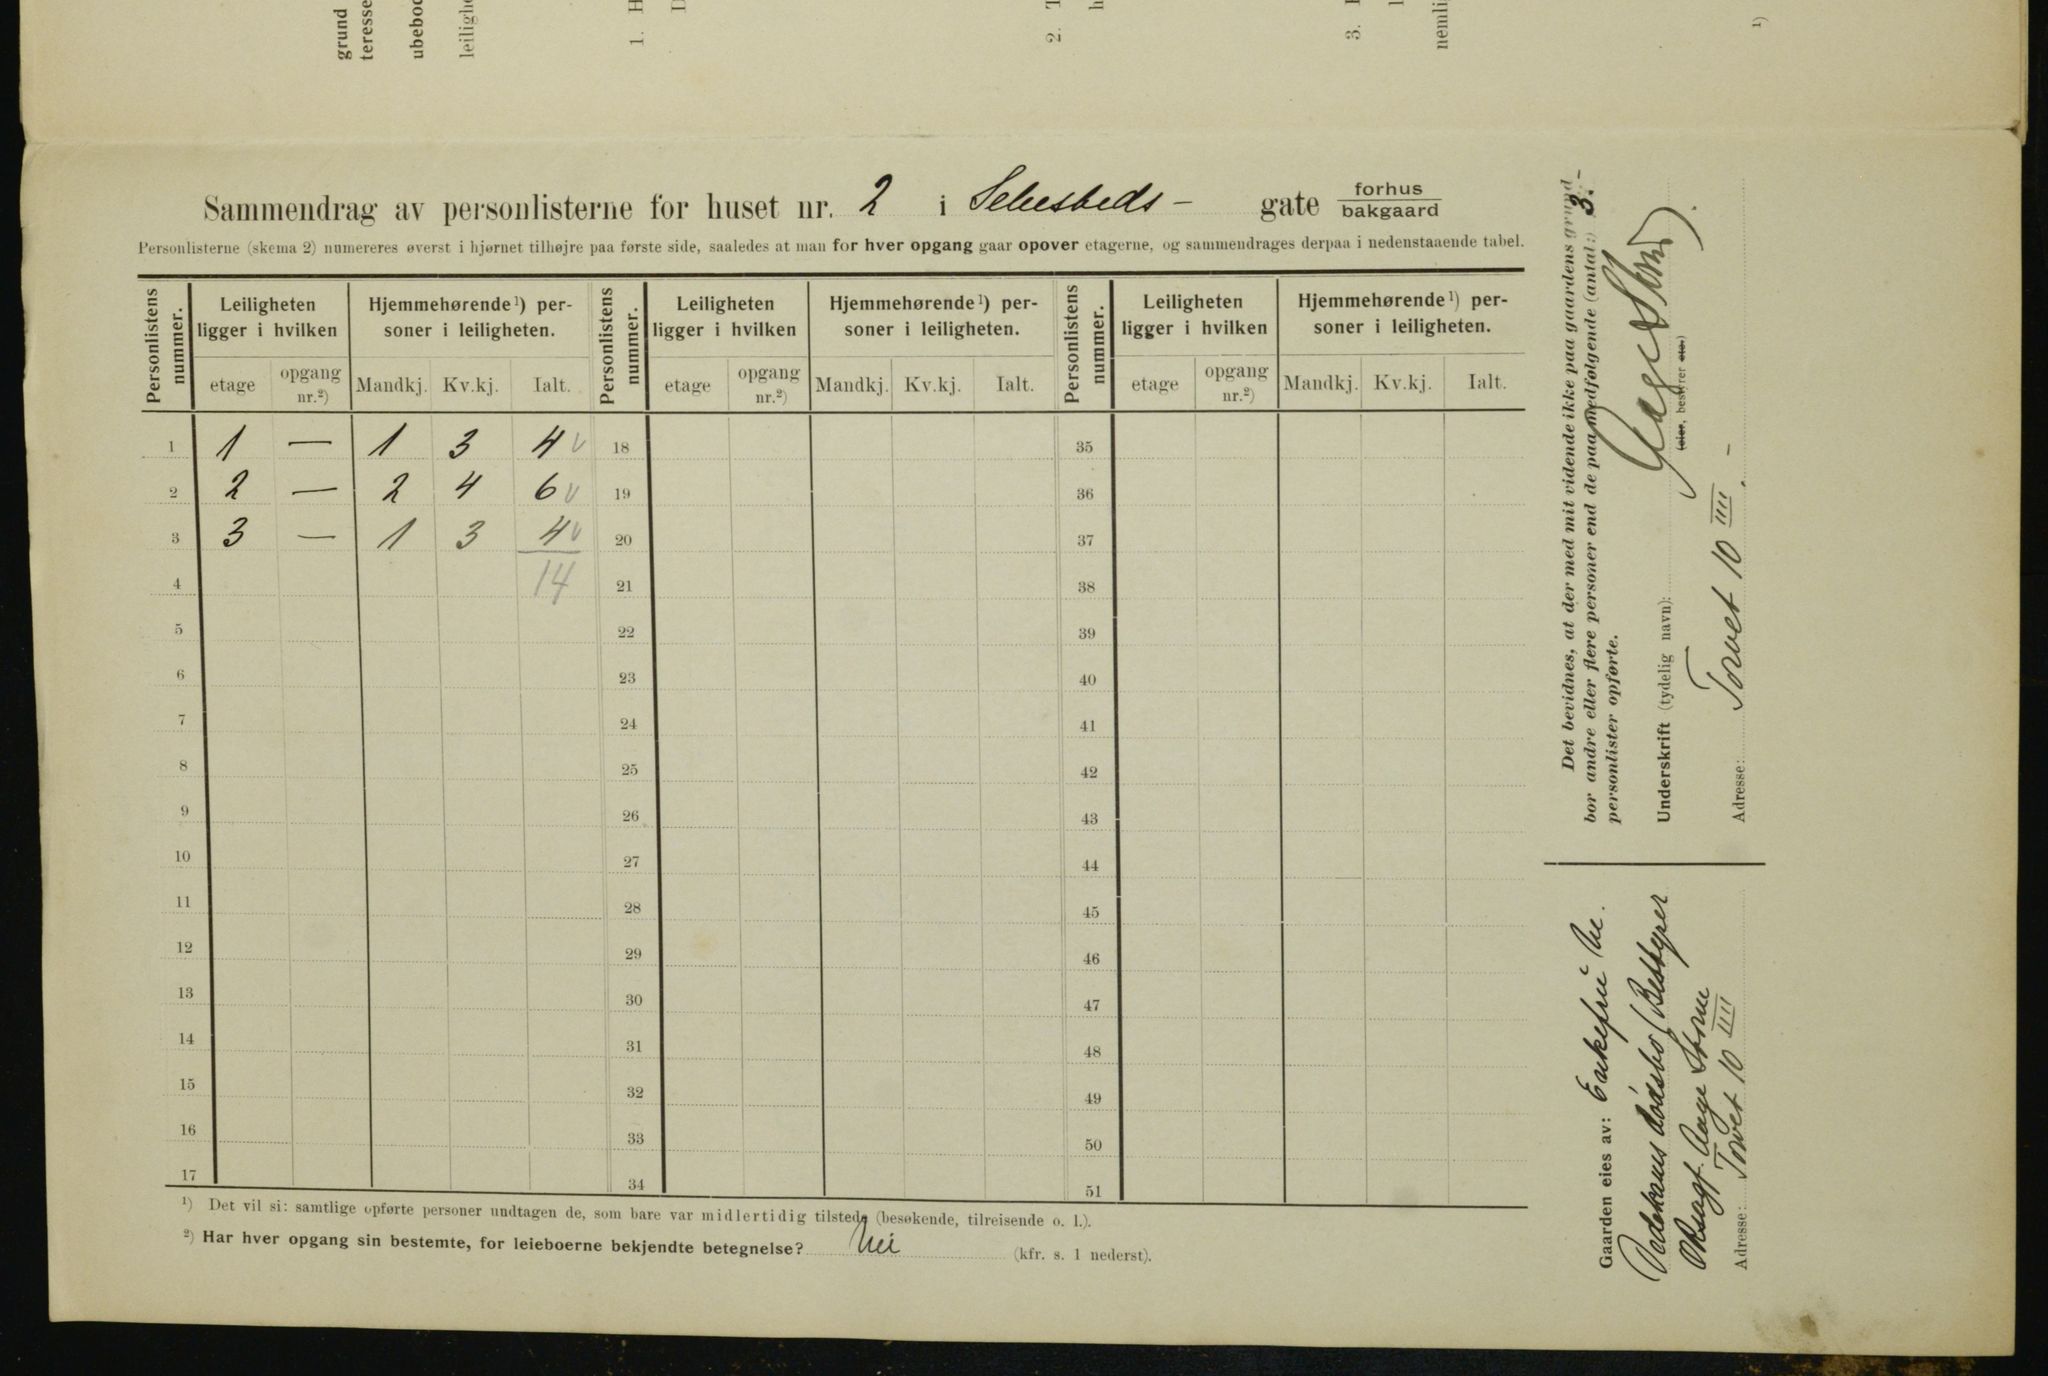 grund
teresse
ubeboe
leilighe
1. H
D
2. T
h
3. F
l
nemli
1)
Sammendrag av personlisterne for huset nr. 2 i Selesbeds- gate forhus
bakgaard
Personlisterne (skema 2) numereres øverst i hjørnet tilhøjre paa første side, saaledes at man for hver opgang gaar opover etagerne, og sammendrages derpaa i nedenstaaende tabel.
Personlistens nummer. Leiligheten ligger i hvilken Hjemmehørende 1) personer i leiligheten. Personlistens nummer. Leiligheten ligger i hvilken Hjemmehørende 1) personer i leiligheten. Personlistens nummer. Leiligheten ligger i hvilken Hjemmehørende 1) personer i leiligheten.
etage opgang nr.2) Mandkj. Kv.kj. Ialt. etage opgang nr.2) Mandkj. Kv.kj. Ialt. etage opgang nr.2) Mandkj. Kv.kj. Ialt.
1 1 — 1 3 4 v 18 35
2 2 — 2 4 6 v 19 36
3 3 — 1 3 4 v 20 37
4 14 21 38
5 22 39
6 23 40
7 24 41
8 25 42
9 26 43
10 27 44
11 28 45
12 29 46
13 30 47
14 31 48
15 32 49
16 33 50
17 34 51
1) Det vil si: samtlige opførte personer undtagen de, som bare var midlertidig tilstede (besøkende, tilreisende o. l.).
2) Har hver opgang sin bestemte, for leieboerne bekjendte betegnelse? Nei (kfr. s. 1 nederst).
Det bevidnes, at der med mit vidende ikke paa gaardens grund
bor andre eller flere personer end de paa medfølgende (antal:) 3.-
personlister opførte.
Underskrift (tydelig navn): Aage Storm
(eier, bestyrer etc.)
Adresse: Torvet 10 IIII -
Gaarden eies av: Enkefru
dødsbo / Bestyrer
Aage Storm
Adresse: Torvet 10 IIII